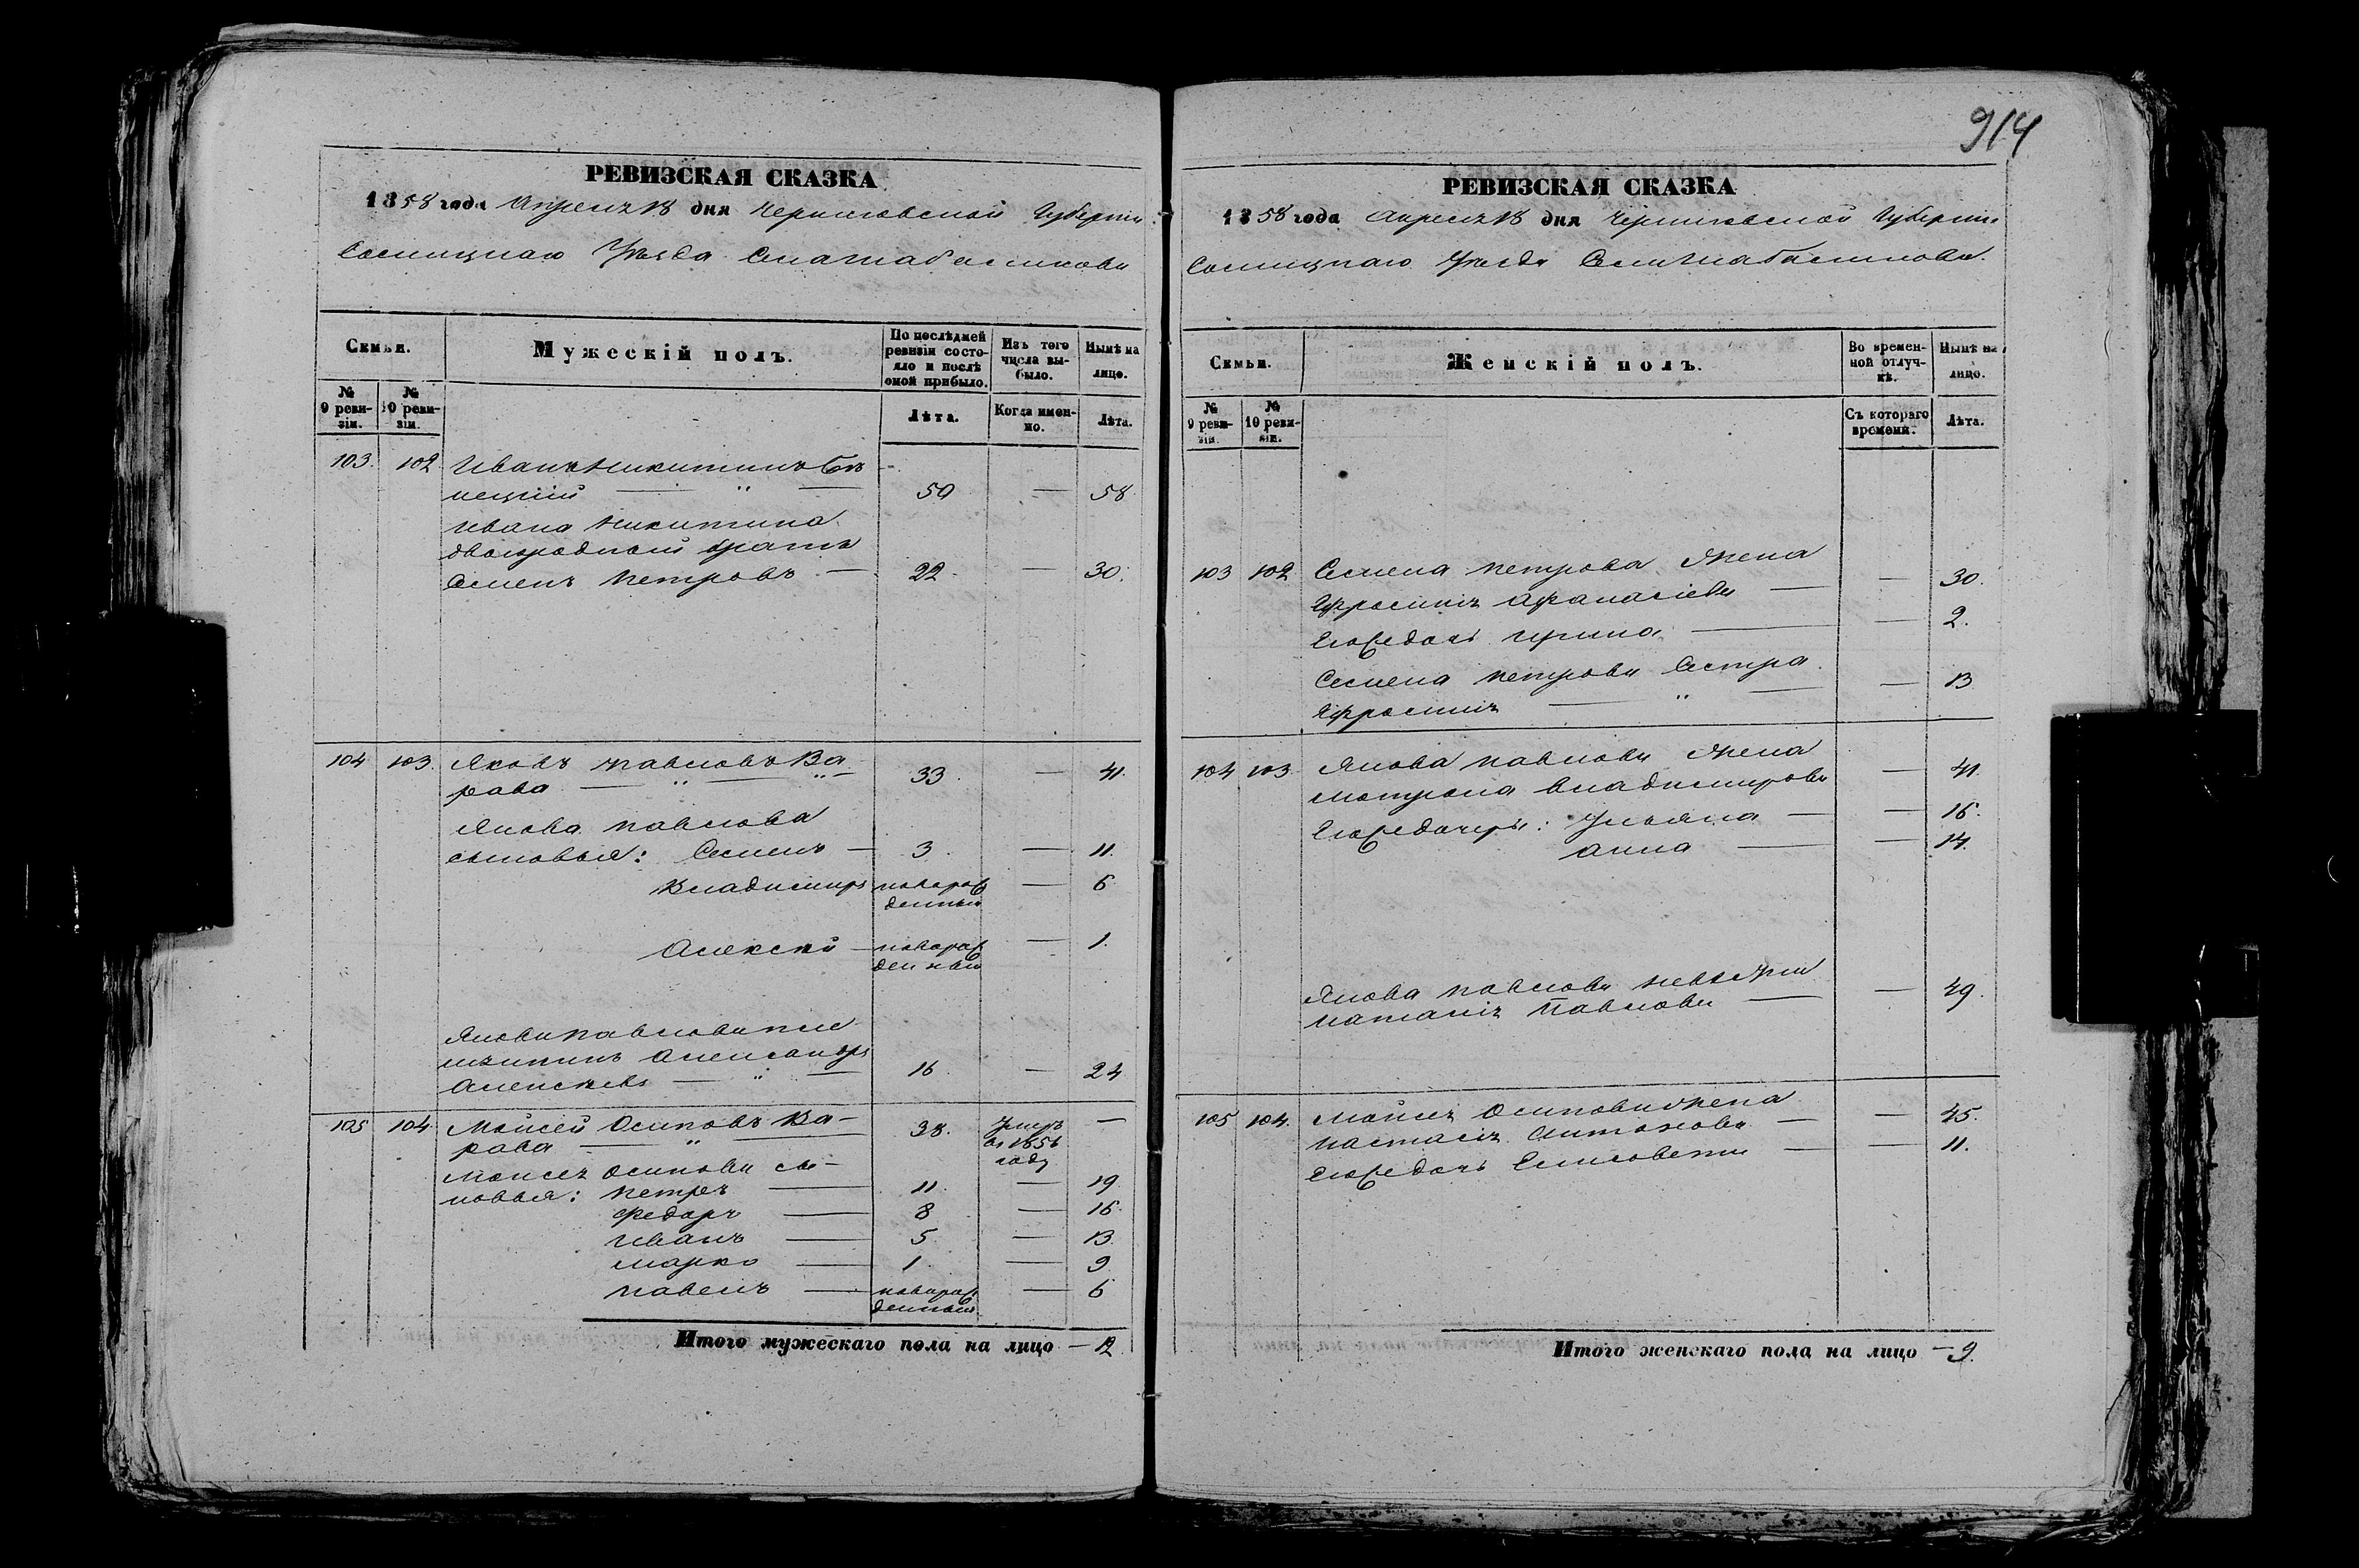 914
РЕВИЗСКАЯ СКАЗКА
1858 года Апреля 18 дня Черниговской Губерніи
Сосницкаго Уезда Села
Семьи. Мужескій полъ. По послѣдней ревизіи состояло и послѣ оной прибыло. Изъ того числа выбыло. Нынѣ на лицо.
№ 9 ревизіи. № 10 ревизіи. Лѣта. Когда именно. Лѣта.
103. 102 Иванъ Никитинъ
нецкій — " — 50 — 58
Ивана Никитина
двоюродный братъ
Семенъ Петровъ — 22 — 30.
104 103. Яковъ Павловъ Ва
рава — " — " 33. — 41.
Якова Павлова
сыновья: Семенъ — 3. — 11.
Владимиръ новорож — 6
денный
Алексей — новорож — 1.
денный
Якова Павлова пле
мяникъ Александръ
Алексеевъ — " — 16 — 24
105 104 Мойсей Осиповъ Ва- 38. Умеръ —
рава — " — въ 1856
году
Моисея Осипова сы-
новья: Петръ — 11. — 19
Федоръ — 8 — 16.
Иванъ — 5 — 13.
Марко — 1 — 9
Павелъ — новорож — 6
денный
Итого мужескаго пола на лицо — 12
РЕВИЗСКАЯ СКАЗКА
1858 года Апреля 18 дня Черниговской Губерніи
Сосницкаго Уезда Села
Семьи. Женскій полъ. Во временной отлучкѣ. Нынѣ на лицо.
№ 9 ревизіи. № 10 ревизіи. Съ котораго времени. Лѣта.
103 102 Семена Петрова Жена
Ефросинія Афанасіева — — 30.
Его же дочь Ирина — — 2.
Семена Петрова Сестра
Ефросинія — " — — 13
104 103 Якова Павлова Жена
Мотрона Владимирова — 41.
Его же дочери: Ульяна — — 16.
Анна — — 14.
Якова Павлова
Наталія Павлова — — 49.
105 104. Мойсея Осипова Жена
Настасія Антонова — — 45.
Его же дочь Елисовета — — 11.
Итого женскаго пола на лицо — 9.